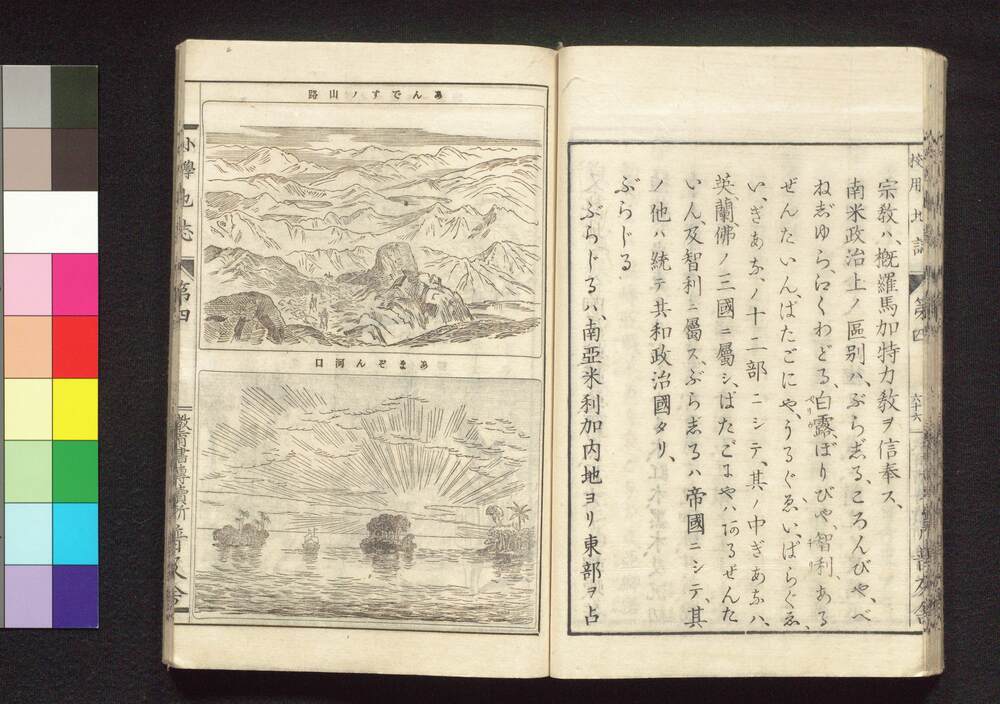 宗教ハ、概羅馬加特力教ヲ信奉ス、
南米政治上ノ區別ハ、ぶらゑる、ころんびや、べ
ねぢゆら、江くわどる、白露、ぼりびや、智利、ある
ぜんたいん、ばたごにや、うるぐゑい、ばらぐゑ
い、ぎあな、ノ十二部ニシテ、其ノ中ぎあなハ、
英蘭佛ノ三國ニ屬シ、ばたごにやハあるぜんた
いん、及智利ニ屬ス、ぶらゑるハ帝國ニシテ、其
ノ他ハ統テ共和政治國タリ、
ぶらじる
ぶらじるハ、南亞米利加内地ヨリ東部ヲ占
校用地誌
第四
六十六
普及舍
あんですノ山路
あまぞん河口
小學地誌
第四
教育書專賣所
普及舍